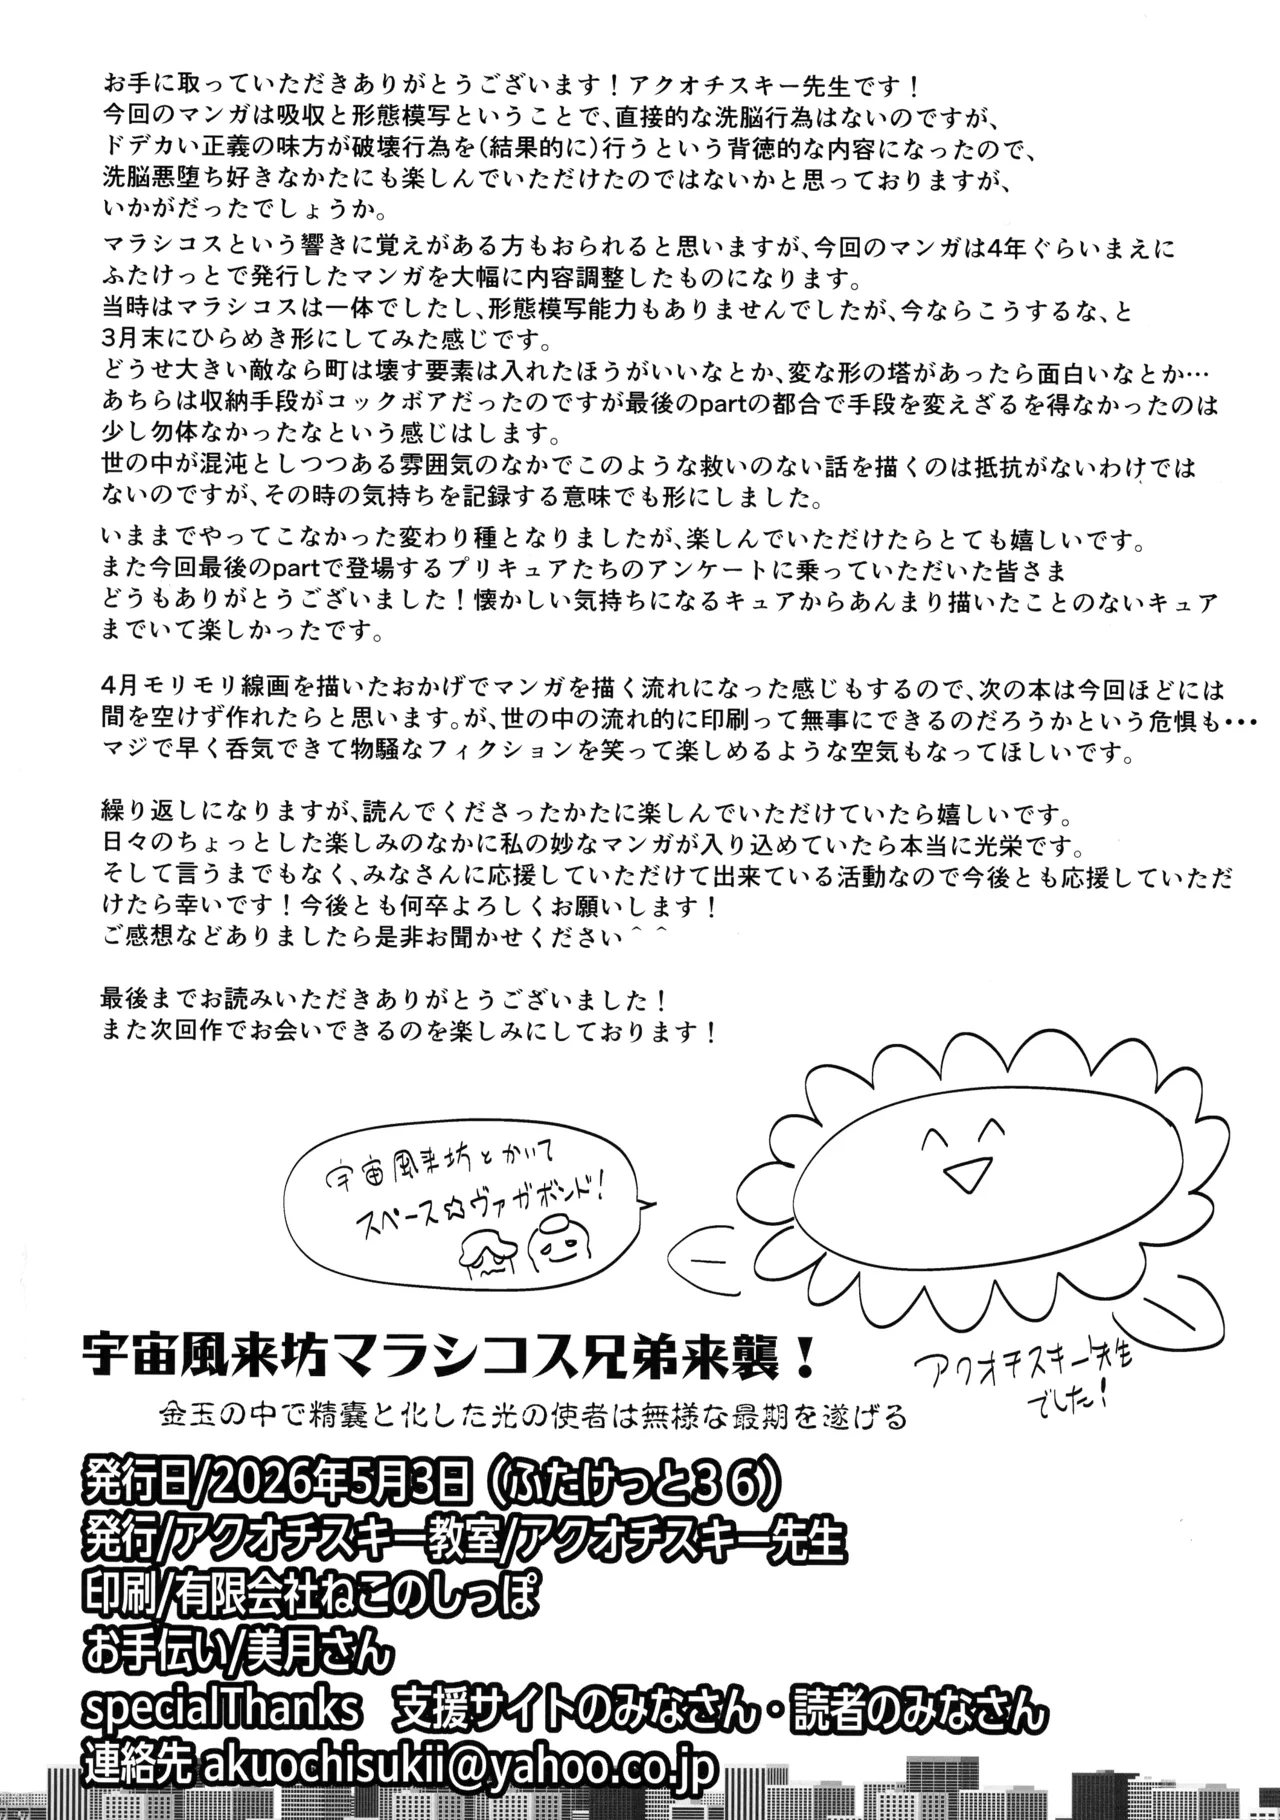 お手に取っていただきありがとうございます！アクオチスキー先生です！
今回のマンガは吸収と形態模写ということで、直接的な洗脳行為はないのですが、
ドデカい正義の味方が破壊行為を(結果的に)行うという背徳的な内容になったので、
洗脳悪堕ち好きなかたにも楽しんでいただけたのではないかと思っておりますが、
いかがだったでしょうか。
マラシコスという響きに覚えがある方もおられると思いますが、今回のマンガは4年ぐらいまえに
ふたけっとで発行したマンガを大幅に内容調整したものになります。
当時はマラシコスは一体でしたし、形態模写能力もありませんでしたが、今ならこうするな、と
3月末にひらめき形にしてみた感じです。
どうせ大きい敵なら町は壊す要素は入れたほうがいいなとか、変な形の塔があったら面白いなとか…
あちらは収納手段がコックボアだったのですが最後のpartの都合で手段を変えざるを得なかったのは
少し勿体なかったなという感じはします。
世の中が混沌としつつある雰囲気のなかでこのような救いのない話を描くのは抵抗がないわけでは
ないのですが、その時の気持ちを記録する意味でも形にしました。
いままでやってこなかった変わり種となりましたが、楽しんでいただけたらとても嬉しいです。
また今回最後のpartで登場するプリキュアたちのアンケートに乗っていただいた皆さま
どうもありがとうございました！懐かしい気持ちになるキュアからあんまり描いたことのないキュア
までいて楽しかったです。
4月モリモリ線画を描いたおかげでマンガを描く流れになった感じもするので、次の本は今回ほどには
間を空けず作れたらと思います。が、世の中の流れ的に印刷って無事にできるのだろうかという危惧も・・・
マジで早く呑気できて物騒なフィクションを笑って楽しめるような空気もなってほしいです。
繰り返しになりますが、読んでくださったかたに楽しんでいただけていたら嬉しいです。
日々のちょっとした楽しみのなかに私の妙なマンガが入り込めていたら本当に光栄です。
そして言うまでもなく、みなさんに応援していただけて出来ている活動なので今後とも応援していただ
けたら幸いです！今後とも何卒よろしくお願いします！
ご感想などありましたら是非お聞かせください＾＾
最後までお読みいただきありがとうございました！
また次回作でお会いできるのを楽しみにしております！
宇宙風来坊とかいて
スペース☆ヴァガボンド！
アクオチスキー先生
でした！
宇宙風来坊マラシコス兄弟来襲！
金玉の中で精嚢と化した光の使者は無様な最期を遂げる
発行日/2026年5月3日（ふたけっと３６）
発行/アクオチスキー教室/アクオチスキー先生
印刷/有限会社ねこのしっぽ
お手伝い/美月さん
specialThanks　支援サイトのみなさん・読者のみなさん
連絡先 akuochisukii@yahoo.co.jp